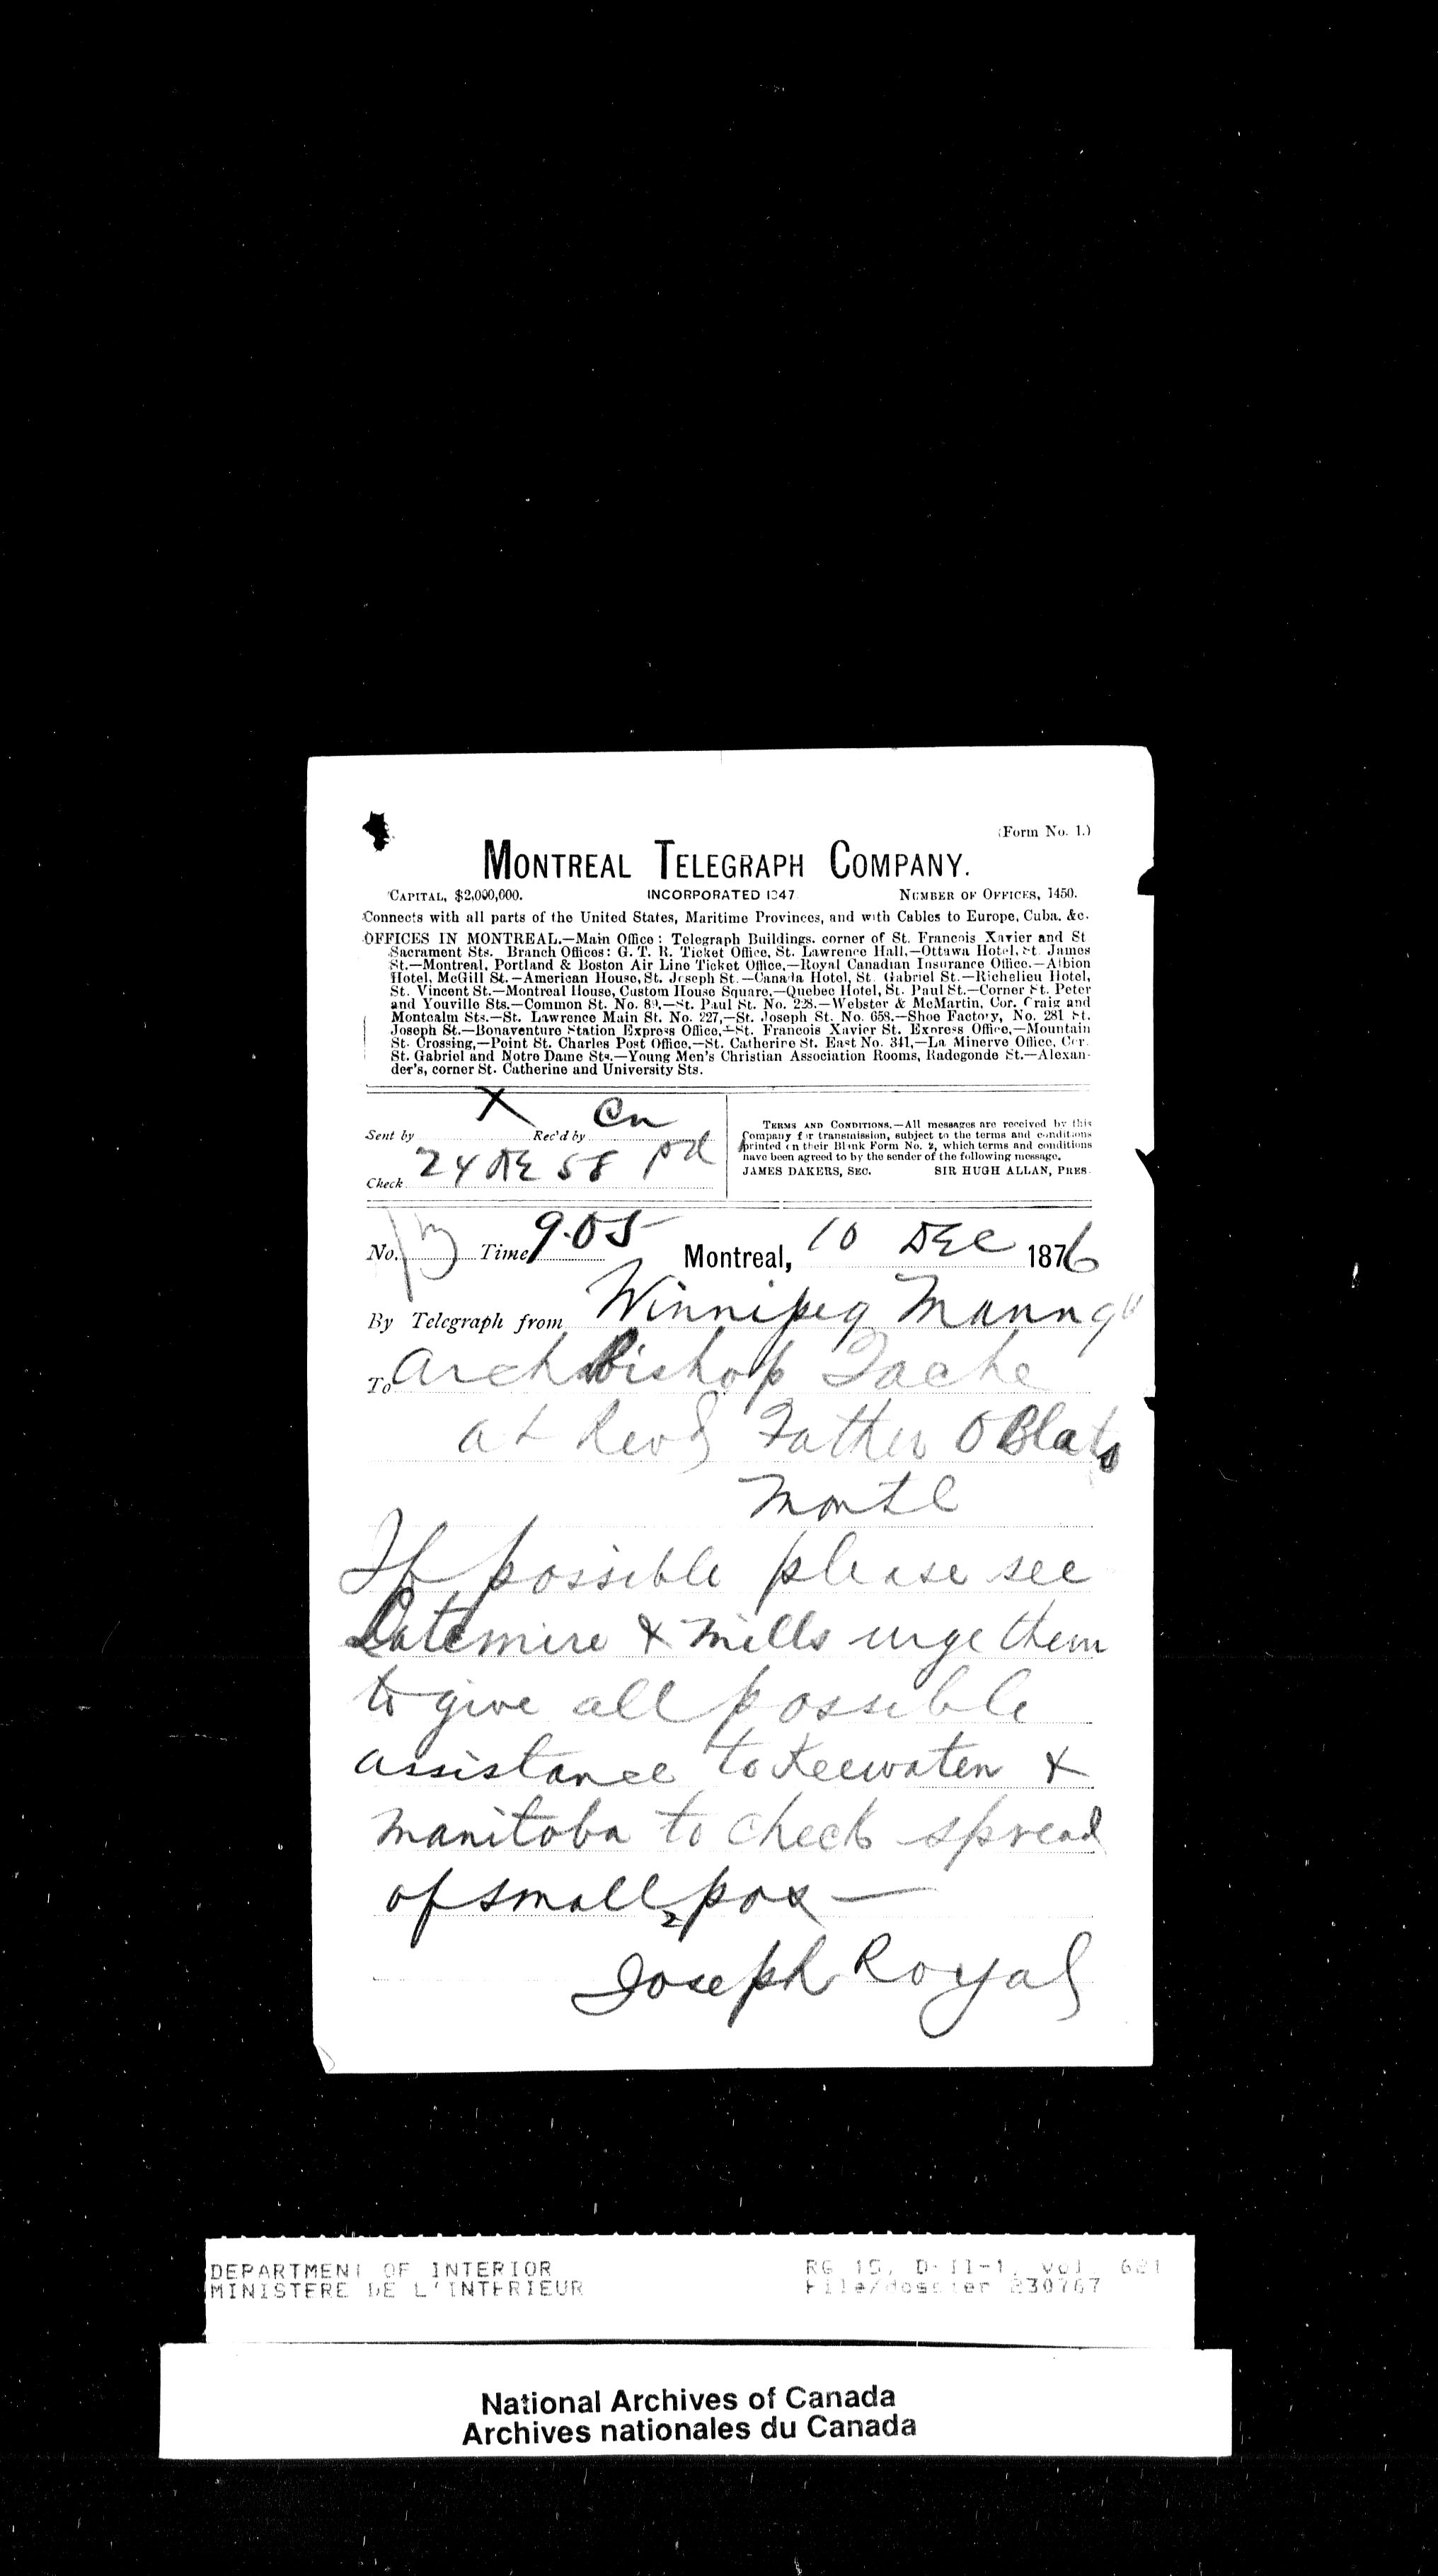 (Form No. 1.)
MONTREAL TELEGRAPH COMPANY.
CAPITAL, $2,000,000. INCORPORATED 1847 NUMBER OF OFFICES, 1450.
Connects with all parts of the United States, Maritime Provinces, and with Cables to Europe, Cuba, &c.
OFFICES IN MONTREAL.—Main Office: Telegraph Buildings, corner of St. Francois Xavier and St
Sacrament Sts. Branch Offices: G. T. R. Ticket Office, St. Lawrence Hall,—Ottawa Hotel, St. James
St.—Montreal, Portland & Boston Air Line Ticket Office.—Royal Canadian Insurance Office.—Albion
Hotel, McGill St.—American House, St. Joseph St.—Canada Hotel, St. Gabriel St.—Richelieu Hotel,
St. Vincent St.—Montreal House, Custom House Square,—Quebec Hotel, St. Paul St.—Corner St. Peter
and Youville Sts.—Common St. No. 89.—St. Paul St. No. 228.—Webster & McMartin, Cor. Craig and
Montcalm Sts.—St. Lawrence Main St. No. 227,—St. Joseph St. No. 658.—Shoe Factory, No. 281 St.
Joseph St.—Bonaventure Station Express Office,—St. Francois Xavier St. Express Office,—Mountain
St. Crossing,—Point St. Charles Post Office.—St. Catherine St. East No. 341,—La Minerve Office, Cor.
St. Gabriel and Notre Dame Sts.—Young Men's Christian Association Rooms, Radegonde St.—Alexan-
der's, corner St. Catherine and University Sts.
Sent by X Rec'd by Cn
Check 24 DE 58 pd
TERMS AND CONDITIONS.—All messages are received by this
Company for transmission, subject to the terms and conditions
printed on their Blank Form No. 2, which terms and conditions
have been agreed to by the sender of the following message.
JAMES DAKERS, SEC. SIR HUGH ALLAN, PRES.
No. Time 9.05 Montreal, 10 DEC 1876
By Telegraph from Winnipeg Mann
To Archbishop Tache
at Revd Father OBlats
Montl
If possible please see
Letemire & Mills urge them
to give all possible
assistance to Keewaten &
Manitoba to check spread
of small pox —
Joseph Royal
DEPARTMENT OF INTERIOR RG 15, D-II-1, vol. 621
MINISTERE DE L'INTERIEUR File/dossier 230767
National Archives of Canada
Archives nationales du Canada